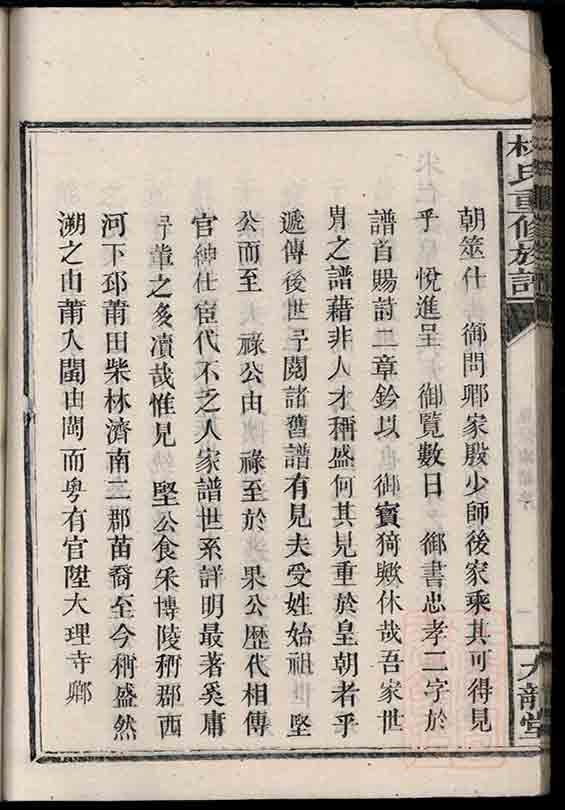 林氏重修族譜
九龍堂
朝筮仕 御問卿家殷少師後家乘其可得見
乎 悅進呈 御覽數日 御書忠孝二字於
譜首賜詩二章鈐以 御寶猗歟休哉吾家世
胄之譜藉非人才稱盛何其見重於皇朝者乎
遞傳後世予閱諸舊譜有見夫受姓始祖 堅
公而至 祿公由 祿至於 果公歷代相傳
官紳仕宦代不乏人家譜世系詳明最著奚庸
予輩之多凟哉惟見 堅公食采博陵稱郡西
河下邳莆田柴林濟南二郡苗裔至今稱盛然
溯之由莆入閩由閩而粤有官陞大理寺卿